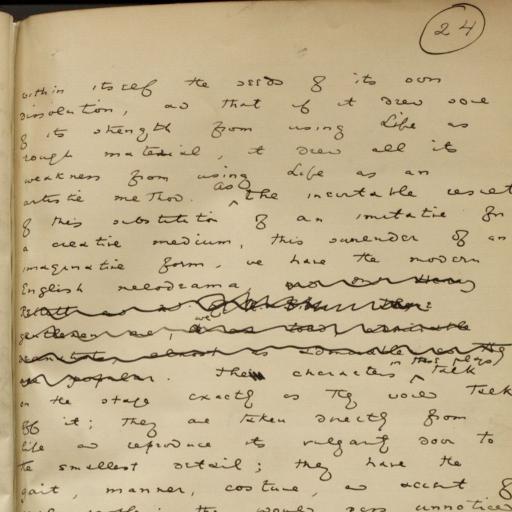 24
within itself the seeds of its own
dissolution, and that if it drew some
of its strength from using Life as
rough material, it drew all its
weakness from using Life as an
artistic method. As the inevitable result
of this substitution of an imitative for
a creative medium, this surrender of an
imaginative form, we have the modern
English melodrama
The characters in these plays talk
on the stage exactly as they would talk
off it; they are taken directly from
life and reproduce its vulgarity down to
the smallest detail; they have the
gait, manner, costume, and accent of
real people; they would pass unnoticed